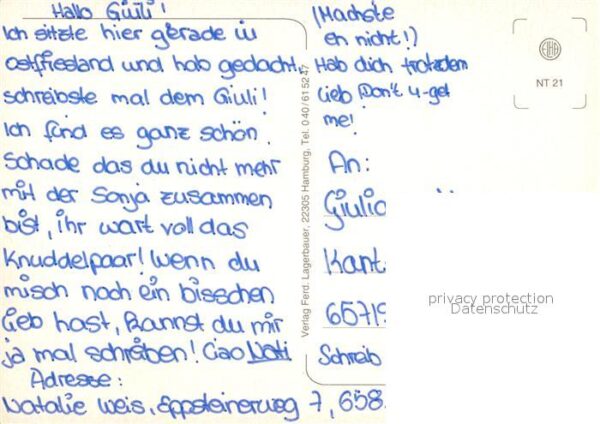 Hallo Giuli!
Ich sitzte hier gerade in
ostfriesland und hab gedacht,
schreibste mal dem Giuli!
Ich find es ganz schön.
Schade das du nicht mehr
mit der Sonja zusammen
bist, ihr wart voll das
Knuddelpaar! Wenn du
misch noch ein bisschen
lieb hast, kannst du mir
ja mal schreiben! Ciao Nati
Adresse:
Natalie Weis, Eppsteinerweg 7, 658
Verlag Ferd. Lagerbauer, 22305 Hamburg, Tel. 040/61 52 47
(Machste
eh nicht!)
Hab dich trotzdem
lieb Don't 4-get
me!
An:
Giulio
Kant
65719
Schreib
NT 21
privacy protection
Datenschutz